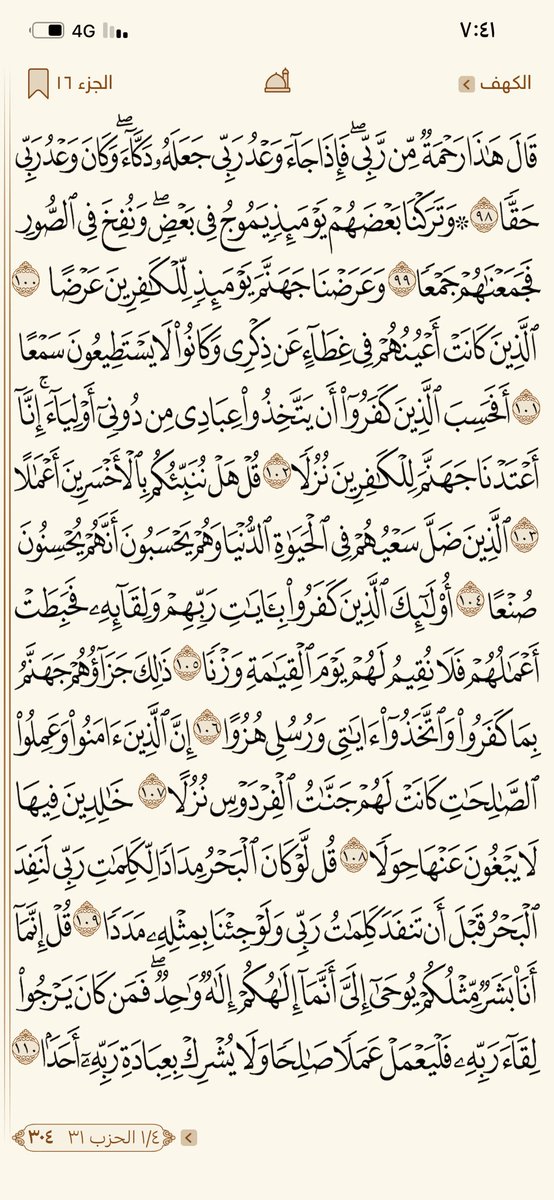 ٧:٤١ 4G
الكهف الجزء ١٦
قَالَ هَٰذَا رَحْمَةٌ مِّن رَّبِّي ۖ فَإِذَا جَآءَ وَعْدُ رَبِّي جَعَلَهُۥ دَكَّآءَ ۖ وَكَانَ وَعْدُ رَبِّي
حَقًّا ٩٨ ۞ وَتَرَكْنَا بَعْضَهُمْ يَوْمَئِذٍ يَمُوجُ فِي بَعْضٍ ۖ وَنُفِخَ فِي ٱلصُّورِ
فَجَمَعْنَٰهُمْ جَمْعًا ٩٩ وَعَرَضْنَا جَهَنَّمَ يَوْمَئِذٍ لِّلْكَٰفِرِينَ عَرْضًا ١٠٠
ٱلَّذِينَ كَانَتْ أَعْيُنُهُمْ فِي غِطَآءٍ عَن ذِكْرِي وَكَانُوا۟ لَا يَسْتَطِيعُونَ سَمْعًا
١٠١ أَفَحَسِبَ ٱلَّذِينَ كَفَرُوٓا۟ أَن يَتَّخِذُوا۟ عِبَادِي مِن دُونِيٓ أَوْلِيَآءَ ۚ إِنَّآ
أَعْتَدْنَا جَهَنَّمَ لِلْكَٰفِرِينَ نُزُلًا ١٠٢ قُلْ هَلْ نُنَبِّئُكُم بِٱلْأَخْسَرِينَ أَعْمَٰلًا
١٠٣ ٱلَّذِينَ ضَلَّ سَعْيُهُمْ فِي ٱلْحَيَوٰةِ ٱلدُّنْيَا وَهُمْ يَحْسَبُونَ أَنَّهُمْ يُحْسِنُونَ
صُنْعًا ١٠٤ أُو۟لَٰٓئِكَ ٱلَّذِينَ كَفَرُوا۟ بِـَٔايَٰتِ رَبِّهِمْ وَلِقَآئِهِۦ فَحَبِطَتْ
أَعْمَٰلُهُمْ فَلَا نُقِيمُ لَهُمْ يَوْمَ ٱلْقِيَٰمَةِ وَزْنًا ١٠٥ ذَٰلِكَ جَزَآؤُهُمْ جَهَنَّمُ
بِمَا كَفَرُوا۟ وَٱتَّخَذُوٓا۟ ءَايَٰتِي وَرُسُلِي هُزُوًا ١٠٦ إِنَّ ٱلَّذِينَ ءَامَنُوا۟ وَعَمِلُوا۟
ٱلصَّٰلِحَٰتِ كَانَتْ لَهُمْ جَنَّٰتُ ٱلْفِرْدَوْسِ نُزُلًا ١٠٧ خَٰلِدِينَ فِيهَا
لَا يَبْغُونَ عَنْهَا حِوَلًا ١٠٨ قُل لَّوْ كَانَ ٱلْبَحْرُ مِدَادًا لِّكَلِمَٰتِ رَبِّي لَنَفِدَ
ٱلْبَحْرُ قَبْلَ أَن تَنفَدَ كَلِمَٰتُ رَبِّي وَلَوْ جِئْنَا بِمِثْلِهِۦ مَدَدًا ١٠٩ قُلْ إِنَّمَآ
أَنَا۠ بَشَرٌ مِّثْلُكُمْ يُوحَىٰٓ إِلَيَّ أَنَّمَآ إِلَٰهُكُمْ إِلَٰهٌ وَٰحِدٌ ۖ فَمَن كَانَ يَرْجُوا۟
لِقَآءَ رَبِّهِۦ فَلْيَعْمَلْ عَمَلًا صَٰلِحًا وَلَا يُشْرِكْ بِعِبَادَةِ رَبِّهِۦٓ أَحَدًۢا ١١٠
١/٤ الحزب ٣١ ٣٠٤